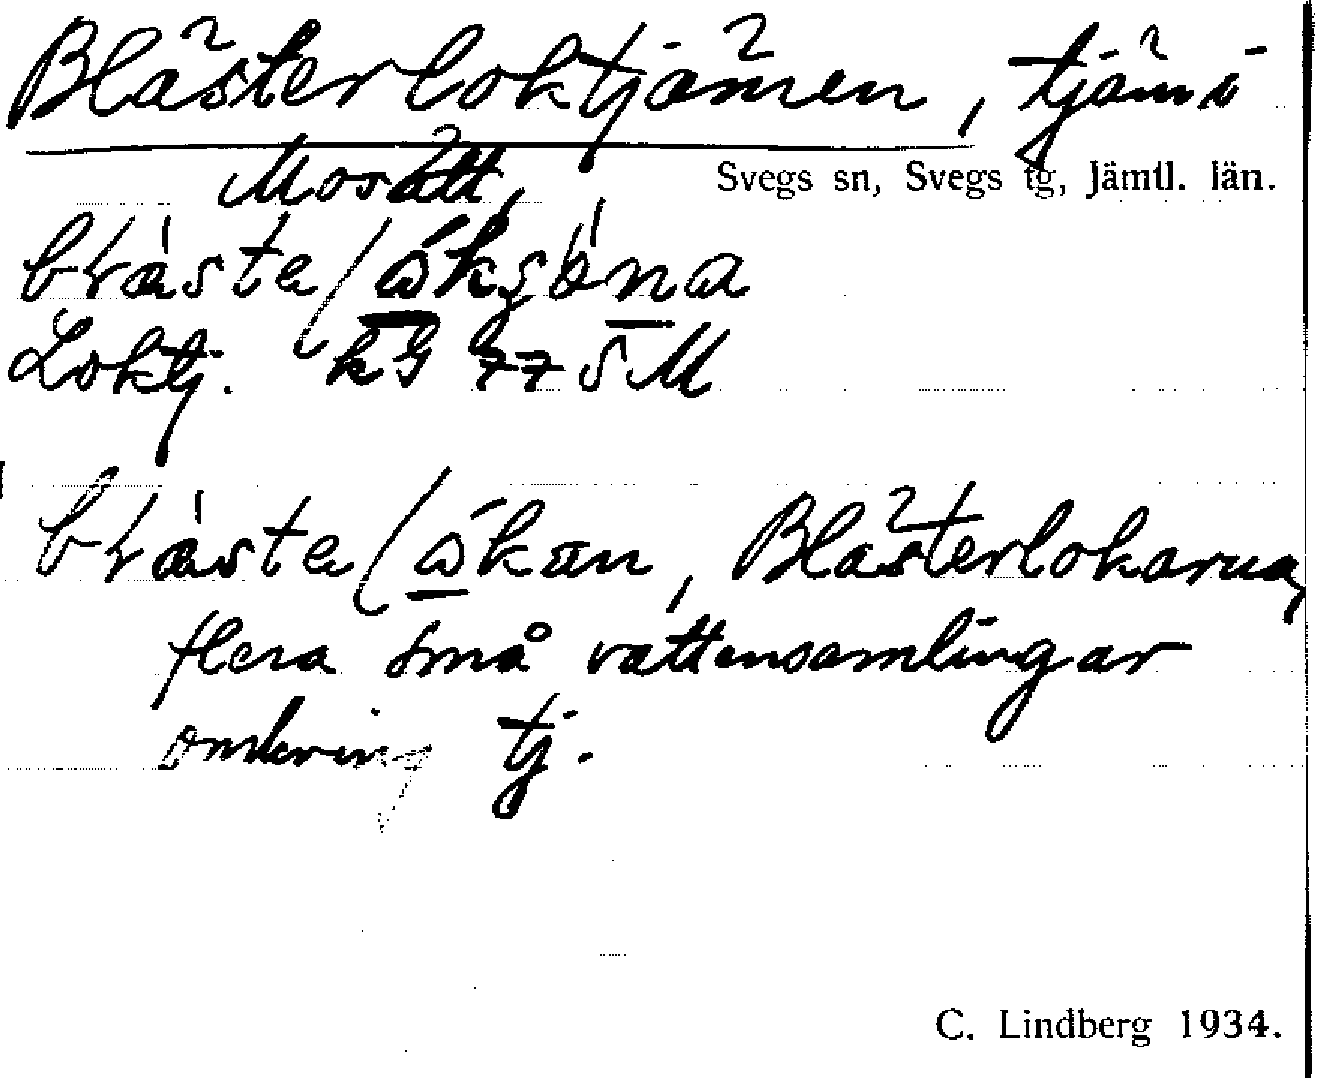 Blästerloktjärnen, tjärn i
Morätt,
Svegs sn, Svegs tg, Jämtl. län.
Loktj. kg 77 SM
Blästerlokarna,
flera små vattensamlingar
omkring tj.
C. Lindberg 1934.